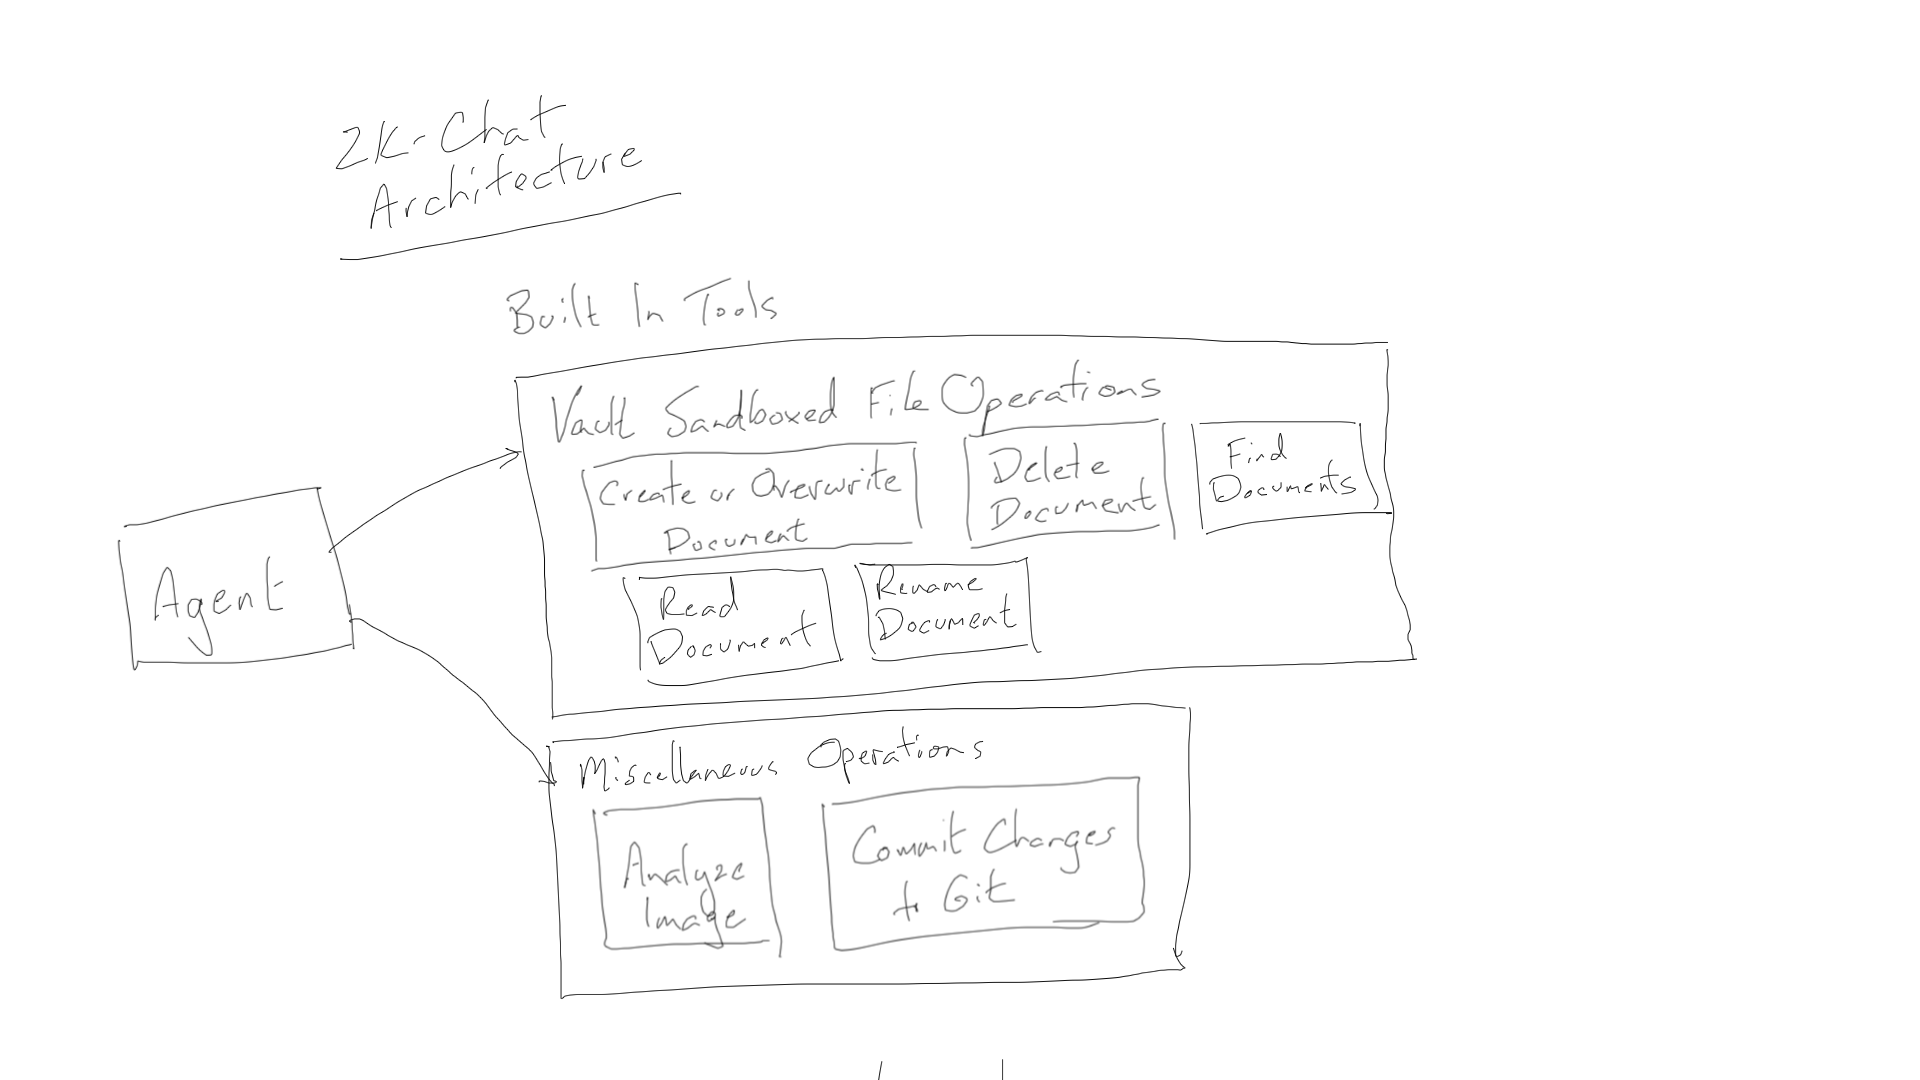 ZK-Chat
Architecture
Built In Tools
Vault Sandboxed File Operations
Create or Overwrite
Document
Delete
Document
Find
Documents
Read
Document
Rename
Document
Agent
Miscellaneous Operations
Analyze
Image
Commit Changes
to Git